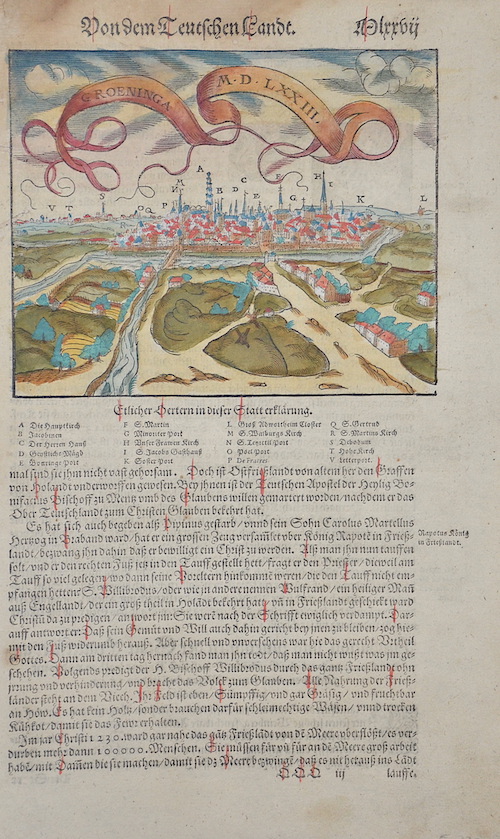 Von dem Teutschen Landt. Mlxxvij
GROENINGA M·D·LXXIII.
A
M
N
B D
C
E
H
I
S
O Q
P
E
G
K
L
V T
Etlicher Oertern in dieser Statt erklärung.
A Die Hauptkirch F S. Martin L Groß Adwortheim Closter Q S. Gertrud
B Jacobinen G Minoriter Port M S. Walburgs Kirch R S. Martins Kirch
C Der Herren Hauß H Unser Frawen Kirch N S. Tezetill Port S
D Geystliche Mägd I S. Jacobs Gasthauß O Poel Port T Hohe Kirch
E Bottringe Port K Port P De Fratres V Porte
mal sind sie ihn nicht vast gehorsam. Doch ist Ostfrießlandt von altem her den Graffen
von Holandt underworffen gewesen. Bey ihnen ist der Teutschen Apostel der Heylig Bo-
nifacius Bischoff zu Mentz vmb des Glaubens willen gemartert worden/ nachdem er das
Ober Teutschlandt zum Christen Glauben bekehrt hat.
Es hat sich auch begeben als Pipinus gestarb/ vnnd sein Sohn Carolus Martellus
Hertzog in Braband ward/ hat er ein grossen Zeug versamlet vber König Rapotē in Frieß-
landt/ bezwang ihn dahin daß er bewilligt ein Christ zu werden. Alß man ihn nun tauffen
solt/ vnd er den rechten Fuß jetz in den Tauff gestellt hett/ fragt er den Priester/ dieweil am
Tauff so viel gelegen/ wo dann seine Voreltern hinkommē weren/ die den Tauff nicht em-
pfangen hetten: S. Willibrodus/ oder wie jn andere nennen Wulfrand/ ein heiliger Mañ
auß Engellandt/ der ein groß theil in Holādt bekehrt hat/ vñ in Frießlandt geschickt ward
Christū da zu predigen/ antwort jm: Sie weren nach der Schrifft ewiglich verdampt. Dar-
auff antwort er: Daß sein Gemüt vnd Will auch dahin gericht bey jnen zu bleiben/ zog hie-
mit den Fuß widerumb herauß. Aber schnell vnd vnversehens war hie das gerecht Vrtheil
Gottes. Dann am dritten tag hernach fand man ihn todt/ daß man nicht wußt was jm ge-
schehen. Volgends prediget der H. Bischoff Willibrodus durch das gantz Frießlandt ohn
jrrung vnd verhinderung/ vnd bracht das Volck zum Glauben. Alle Nahrung der Frieß-
länder steht an dem Viech. Ihr Feld ist eben/ Sümpffig/ vnd gar Gräsig/ vnd fruchtbar
an Höw. Es hat kein Holtz/ sonder brauchen darfür schleimechtige Wasen/ vnnd trocken
Kühkot/ damit sie das Fewr erhalten.
Im jar Christi 1230. ward gar nahe das gātz Frießlād von dē Meere vberflößt/ es ver-
durben mehr dann 100000. Menschen. Sie müssen für vñ für an dē Meere groß arbeit
habē/ mit Dämen die sie machen/ damit sie dz Meere bezwingē/ daß es nit herauß ins Lādt
QQQ iij lauffe.
Rapotus König
in Frießlandt.